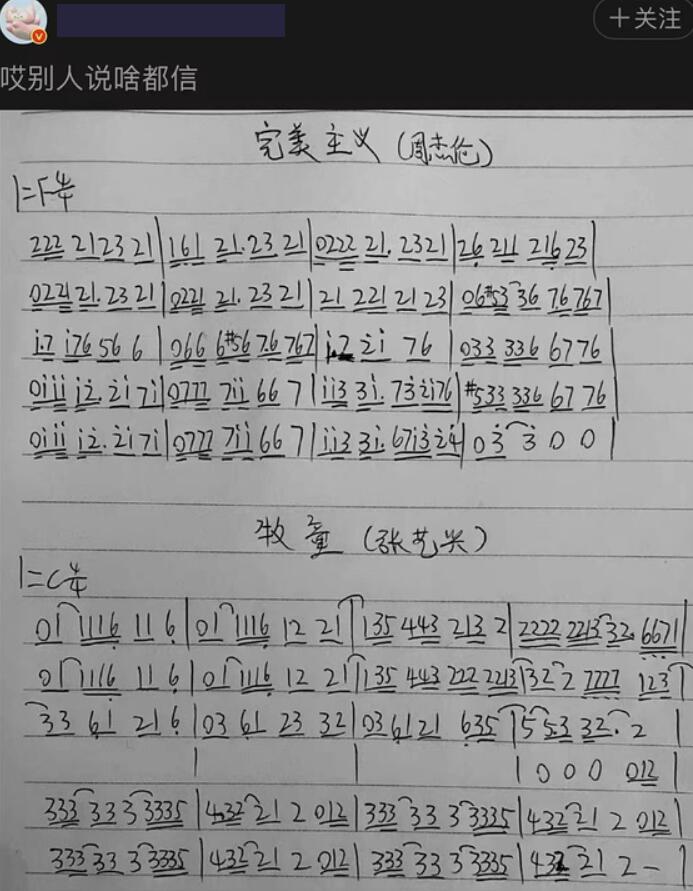 +关注
哎别人说啥都信
完美主义(周杰伦)
1=F 4/4
222 2123 21|161 21.23 21|0222 21.2321|26 211 21623|
0221 21.23 21|0221 21.23 21|21 221 21 23|06#53 36 76 767|
i.7 i76 56 6|066 6#56 7.6 767|i.7 2i 76|033 336 6776|
0iii i2.2i 7i|0777 7ii 66 7|ii3 3i.732i76|#533 336 67 76|
0iii i2.2i7i|0777 7ii 66 7|ii3 3i.67i324|03 3 0 0|
牧童(张艺兴)
1=C 4/4
01 1116 11 6|01 1116 12 21|135 443 213 2|2222 2213 32.6671|
01 1116 11 6|01 1116 12 21|135 443 222 2213|32 2 7777 123|
33 61 21 6|03 61 23 32|03 6121 635|5 5.3 32.2|
| | |0 0 0 012|
333 33 3 3335|4.32 21 2 012|333 33 3 3335|432 21 2 012|
333 33 3 3335|432 21 2 012|333 33 3 3335|432 21 2 -|